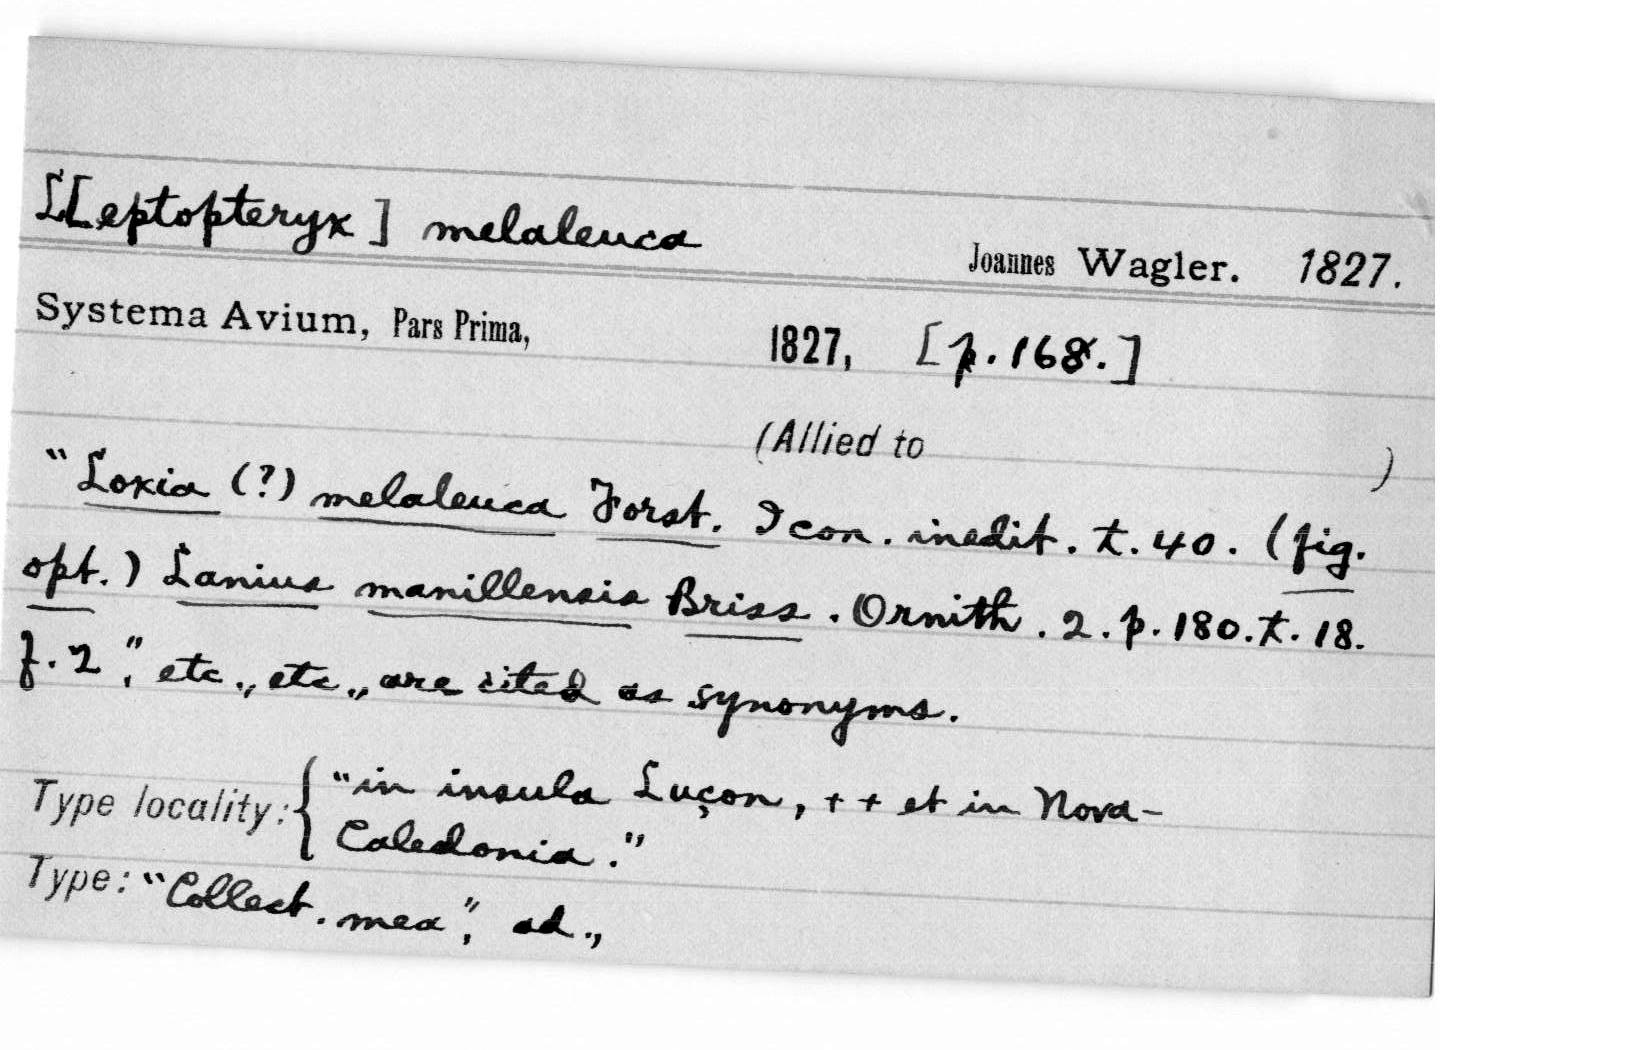 L[eptopteryx] melaleuca
Joannes Wagler. 1827.
Systema Avium, Pars Prima, 1827, [p.168.]
(Allied to )
"Loxia (?) melaleuca Forst. Icon. inedit. t. 40. (fig.
opt.) Lanius manillensis Briss. Ornith. 2. p. 180. t. 18.
f. 2", etc., etc., are cited as synonyms.
Type locality: { "in insula Luçon, + + et in Nova-
Caledonia."
Type: "Collect. mea", ad.,